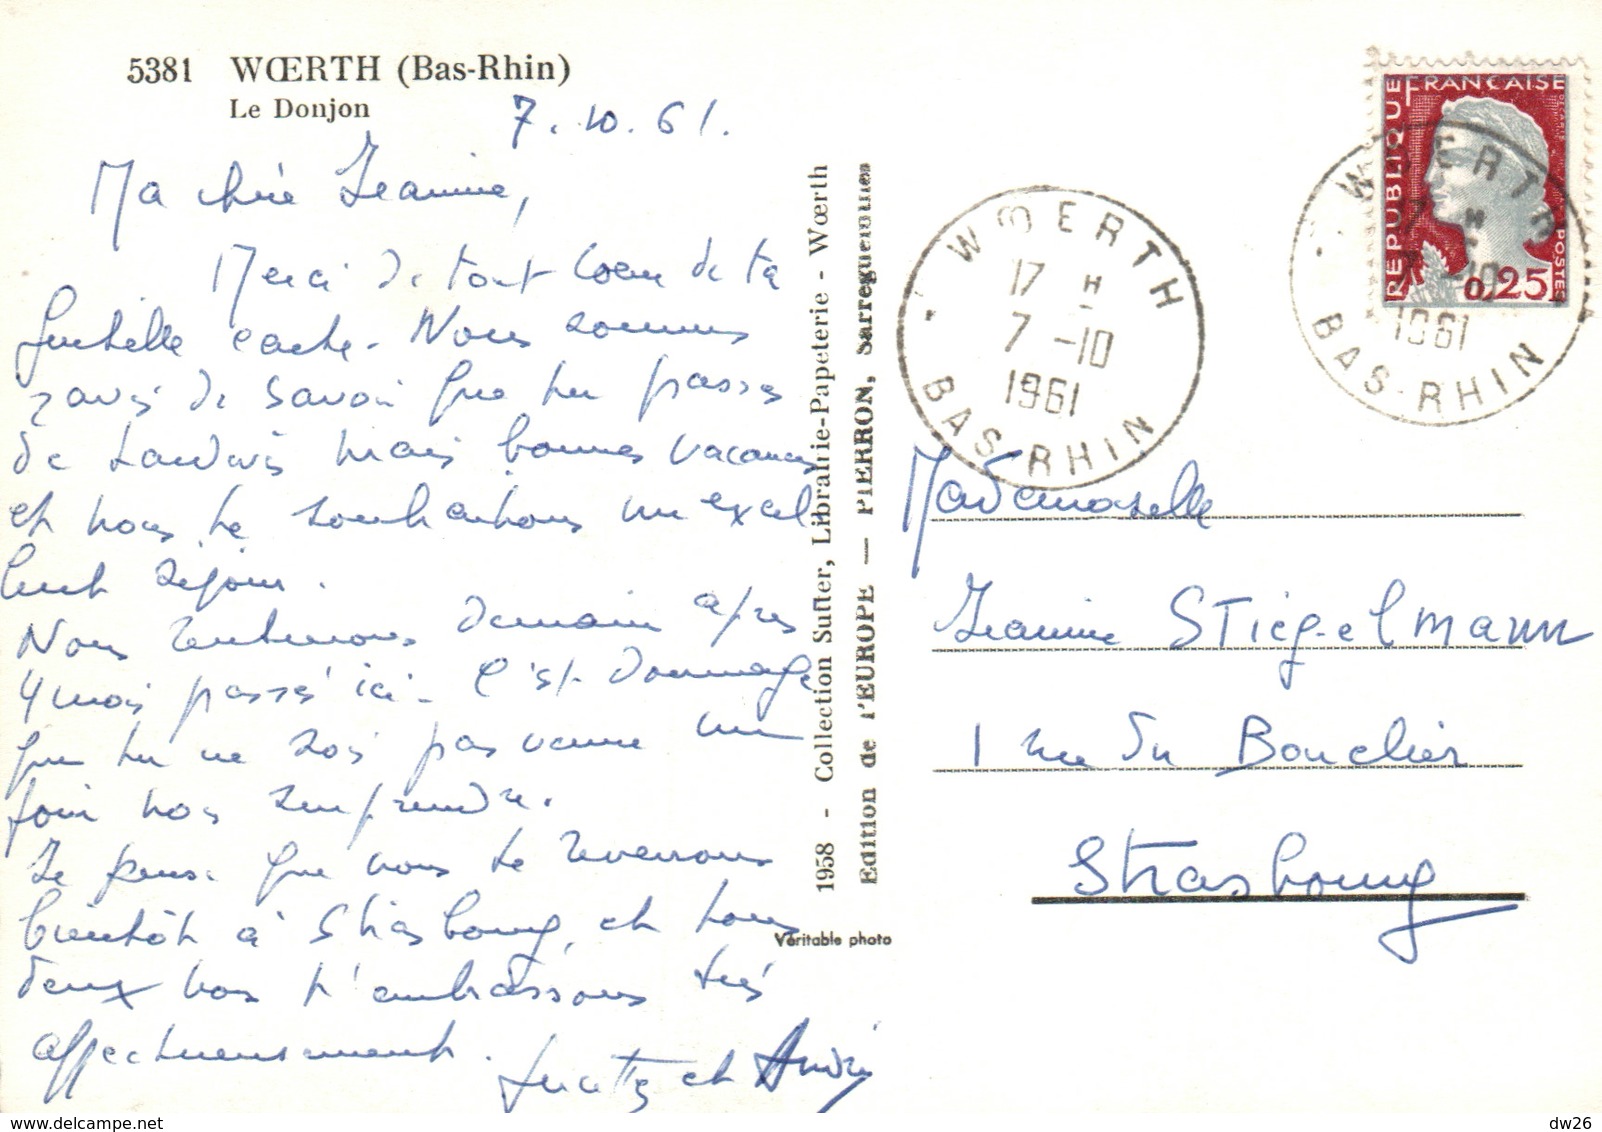 5381 WŒRTH (Bas-Rhin)
Le Donjon
7.10.61.
Ma chère Jeanine,
Merci de tout coeur de ta
gentille carte. Nous sommes
ravis de savoir que tu passes
de bonnes vacances
et nous te souhaitons un excel
lent séjour.
Nous rentrerons demain après
4 mois passés ici. C'est dommage
que tu ne sois pas venue un
jour nous surprendre.
Je pense que nous te reverrons
bientôt à Strasbourg, et tous
deux nous t'embrassons très
affectueusement.
et André
1958 - Collection Sutter, Librairie-Papeterie - Wœrth
Edition de l'EUROPE — PIERRON, Sarreguemines
Véritable photo
REPUBLIQUE FRANÇAISE
POSTES
0,25
WOERTH
17 H
7 -10
1961
BAS-RHIN
WOERTH
17 H
7 -10
1961
BAS-RHIN
Mademoiselle
Jeanine STIEGELMANN
1 rue du Bouclier
Strasbourg
dw26